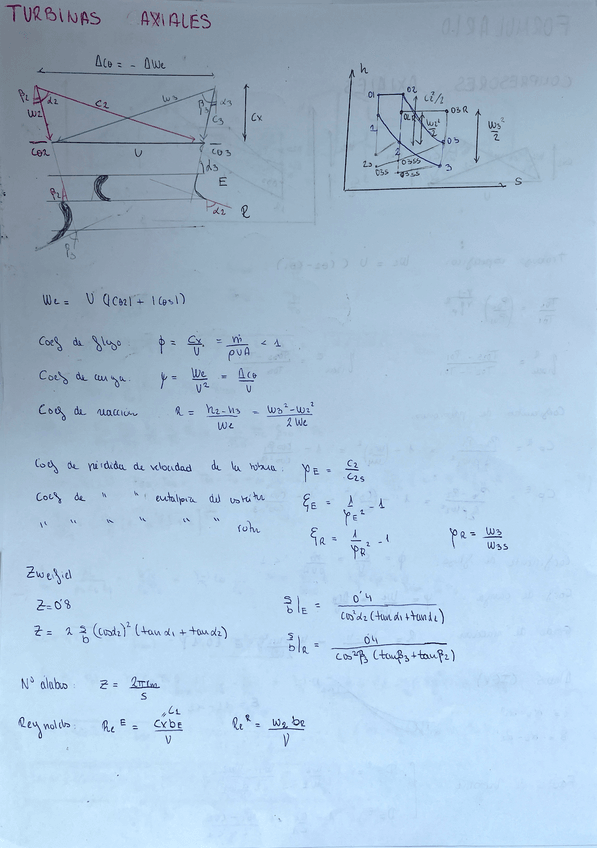 TURBINAS AXIALES
Δcθ = - ΔWθ
β2 α2 c2 w3 β3 α3
W2 c3 cx
cθ2 U cθ3
α3
E
β2 R
α2
β3
h
01 02 c2²/2
02R 03R
1 w2²/2 w3²/2
2 03
2s 03ss 3
03s 3ss
s
We = U (|cθ2| + |cθ3|)
Coef de flujo φ = cx/U = ṁ/ρUA < 1
Coef de carga ψ = We/U² = Δcθ/U
Coef de reacción R = h2-h3/We = w3²-w2²/2We
Coef de pérdida de velocidad de la tobera: φE = c2/c2s
Coef de " " entalpia del estator ξE = 1/φE² - 1
" " " " " " rotor ξR = 1/φR² - 1 φR = w3/w3s
Zweifel
Z=0'8 s/b|E = 0'4/cos²α2 (tanα1+tanα2)
Z = 2 s/b (cosα2)² (tanα1 + tanα2) s/b|R = 04/cos²β3 (tanβ3+tanβ2)
Nº alabes Z = 2πrm/s
Reynolds Re E = cx bE/ν Re R = w2 bR/ν
c1